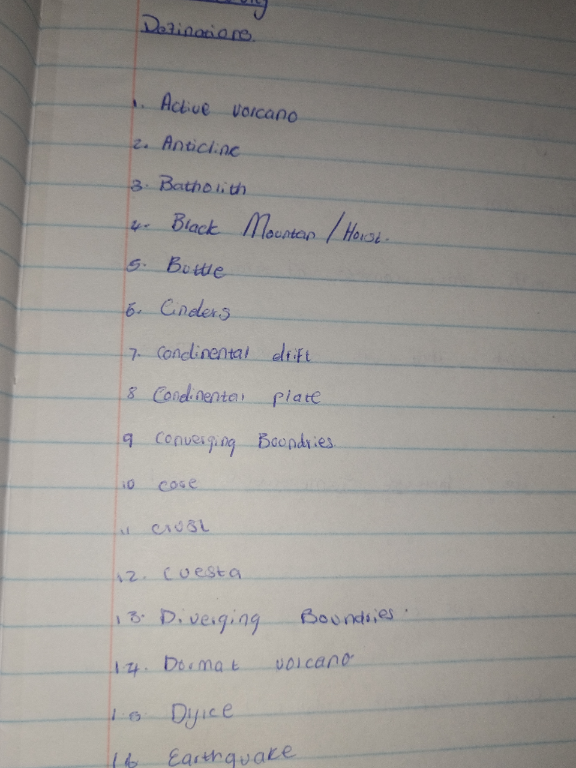 Definations
1. Active volcano
2. Anticline
3. Batholith
4. Black Mountan / Horst.
5. Buttle
6. Cinders
7. Condinental drift
8 Condinental plate
9 Converging Boundries
10 core
11 crust
12. Cuesta
13. Diverging Boundries.
14. Dormat volcano
15 Dyke
16 Earthquake